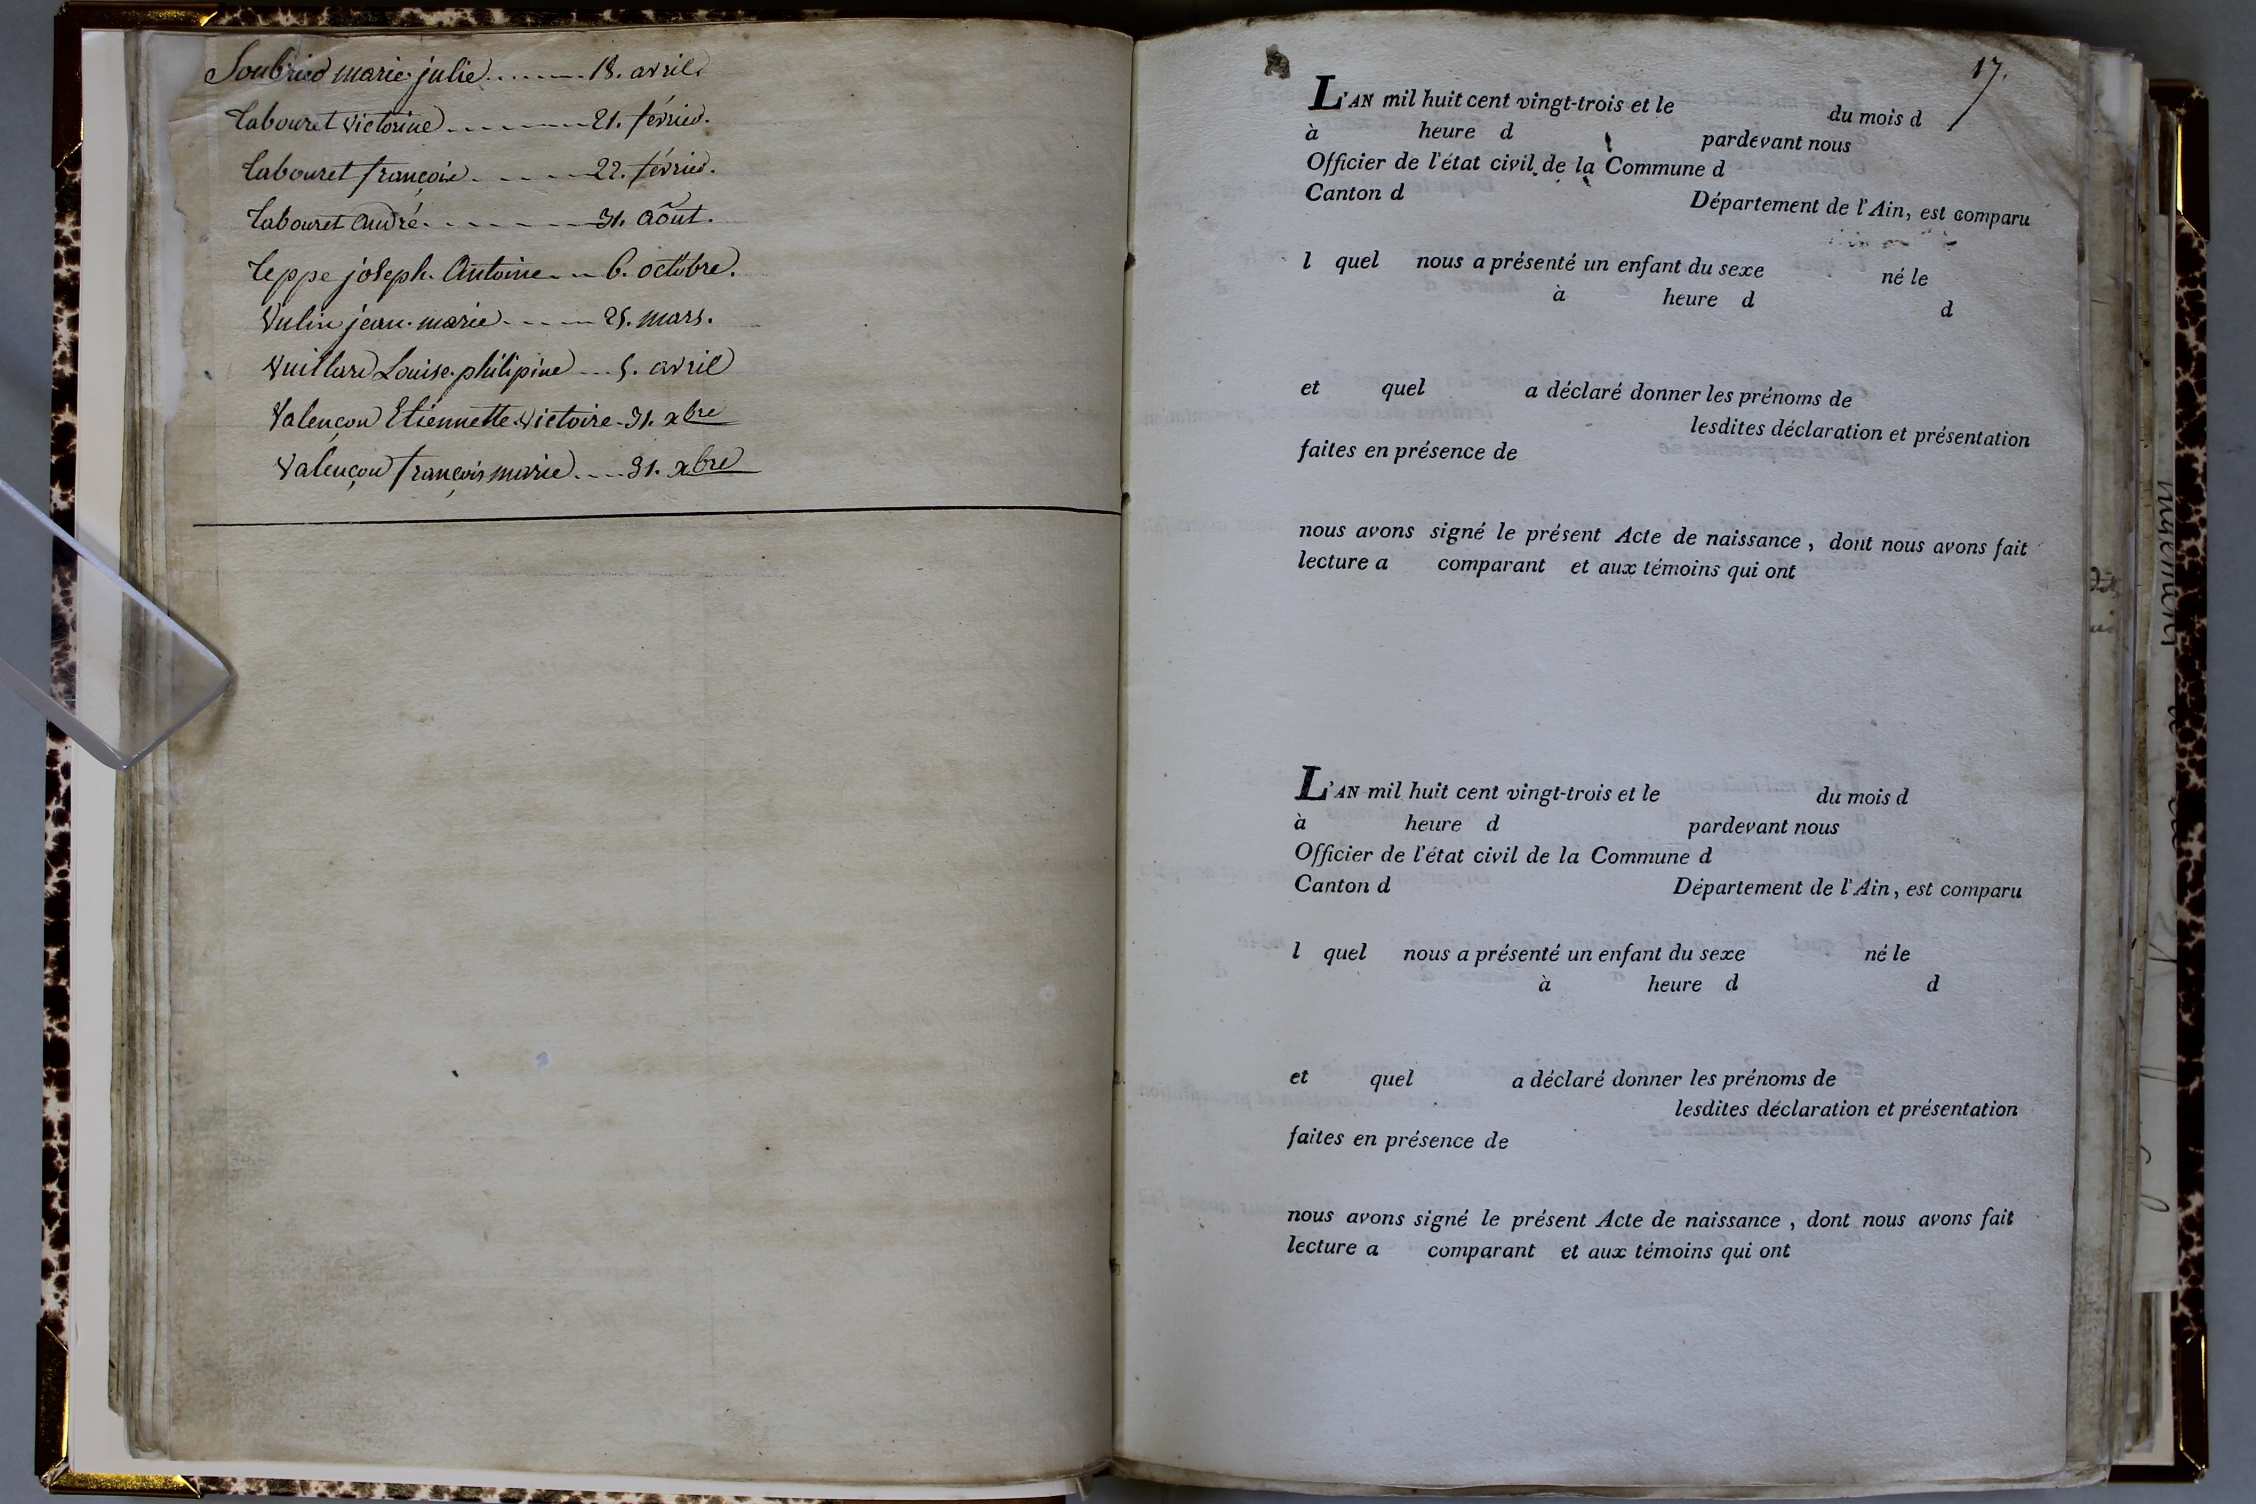 Soubried marie julie ....... 18. avril.
Tabouret Victorine ........ 21. février.
Tabouret françois ...... 22. février.
Tabouret André. ....... 31. Août.
Teppe joseph. Antoine .. 6. octobre.
Vulin jean. marie .... 25. mars.
Vuillard Louise. philipine ... 5. avril
Valençon Etiennette. Victoire . 31. xbre
Valençon françois marie ... 31. xbre
17.
L'AN mil huit cent vingt-trois et le du mois d
à heure d pardevant nous
Officier de l'état civil de la Commune d
Canton d Département de l'Ain, est comparu
l quel nous a présenté un enfant du sexe né le
à heure d d
et quel a déclaré donner les prénoms de
lesdites déclaration et présentation
faites en présence de
nous avons signé le présent Acte de naissance, dont nous avons fait
lecture a comparant et aux témoins qui ont
L'AN mil huit cent vingt-trois et le du mois d
à heure d pardevant nous
Officier de l'état civil de la Commune d
Canton d Département de l'Ain, est comparu
l quel nous a présenté un enfant du sexe né le
à heure d d
et quel a déclaré donner les prénoms de
lesdites déclaration et présentation
faites en présence de
nous avons signé le présent Acte de naissance, dont nous avons fait
lecture a comparant et aux témoins qui ont